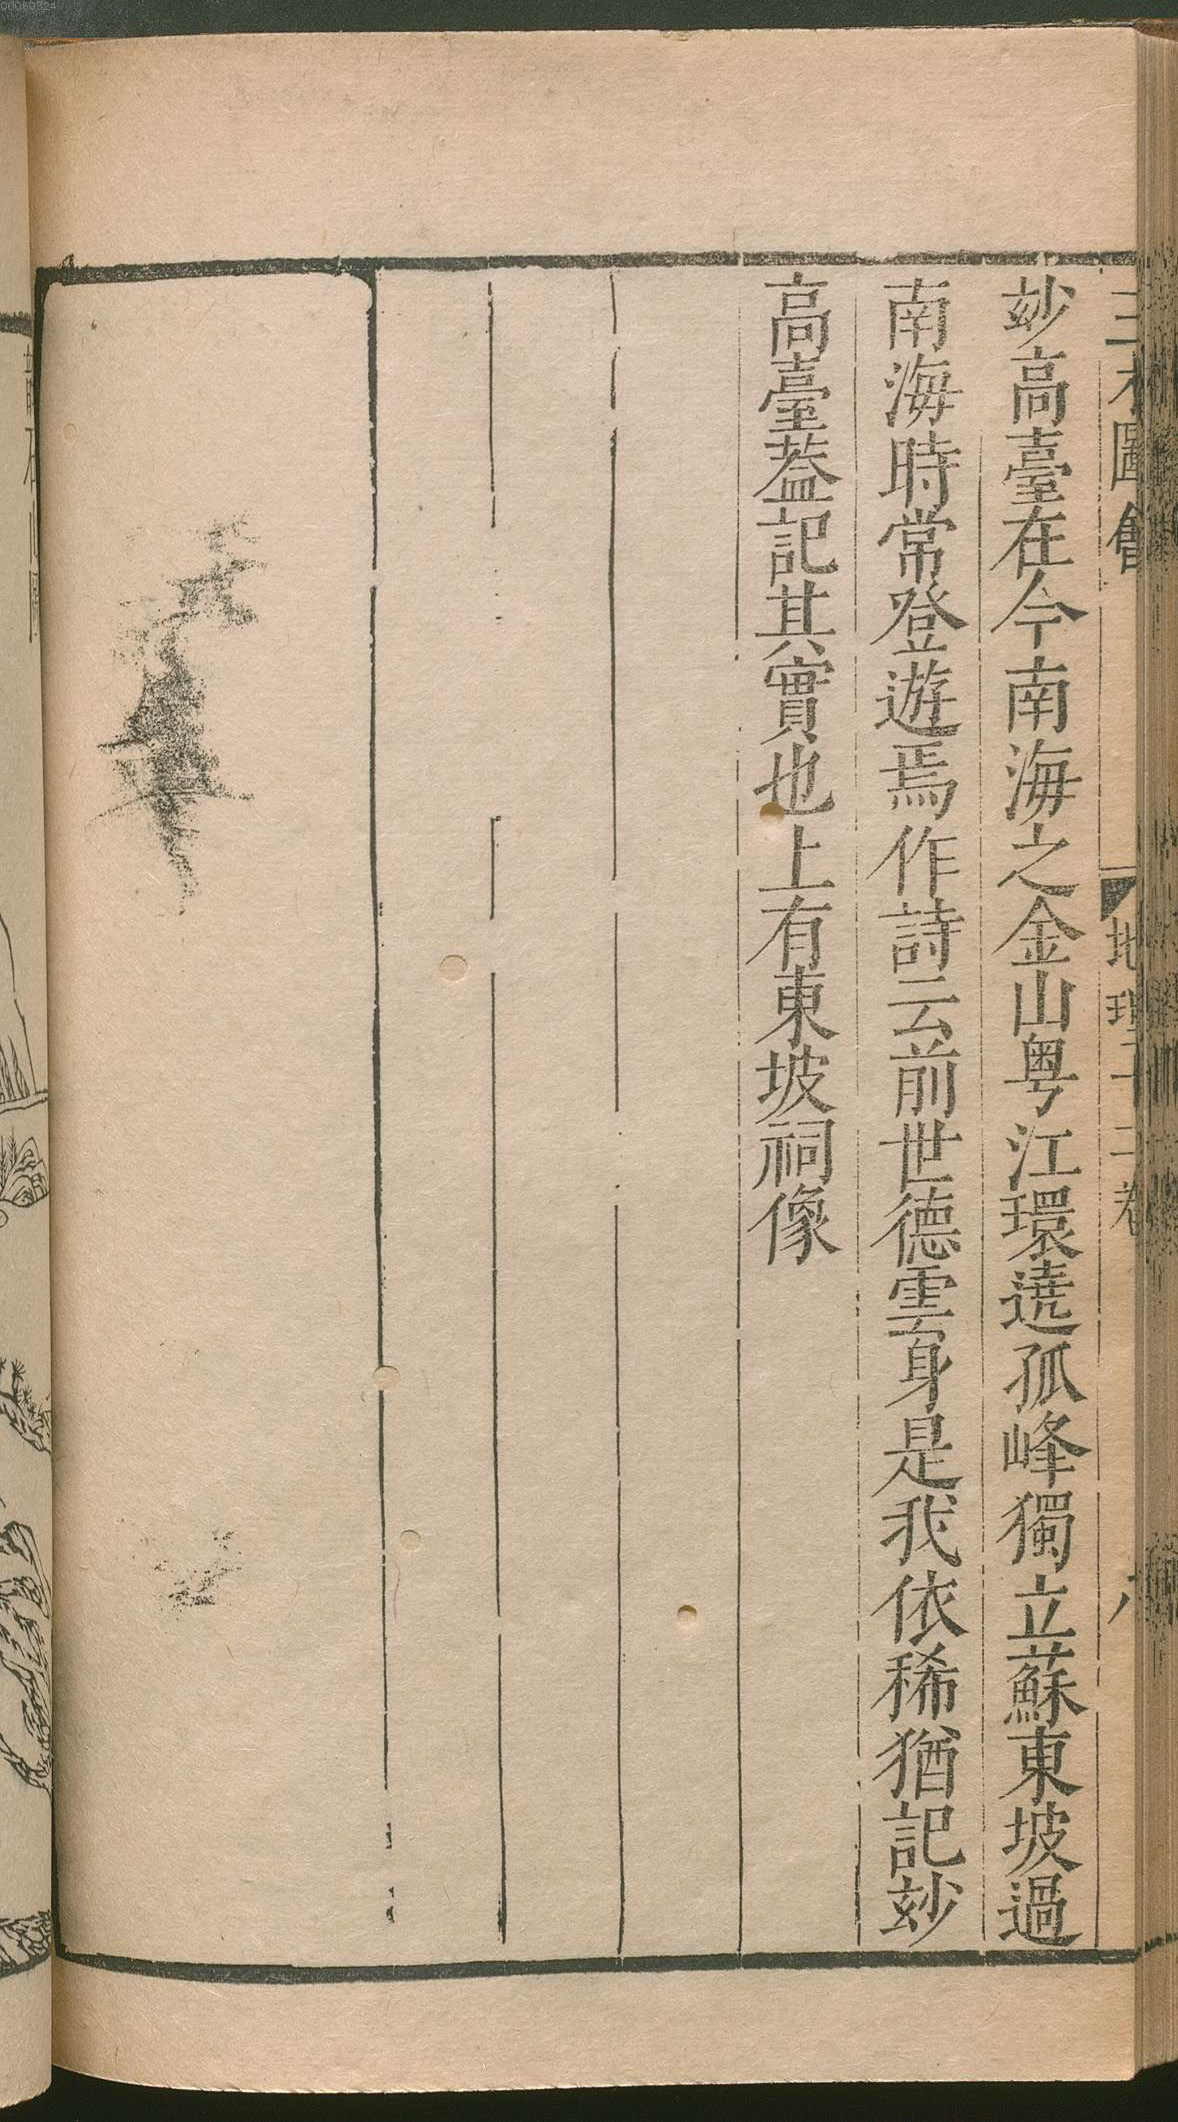 三才圖會 地理十二卷
玅高臺在今南海之金山粤江環遶孤峰獨立蘇東坡過
南海時常登遊焉作詩云前世德雲身是我依稀猶記玅
高臺葢記其實也上有東坡祠像
00060324